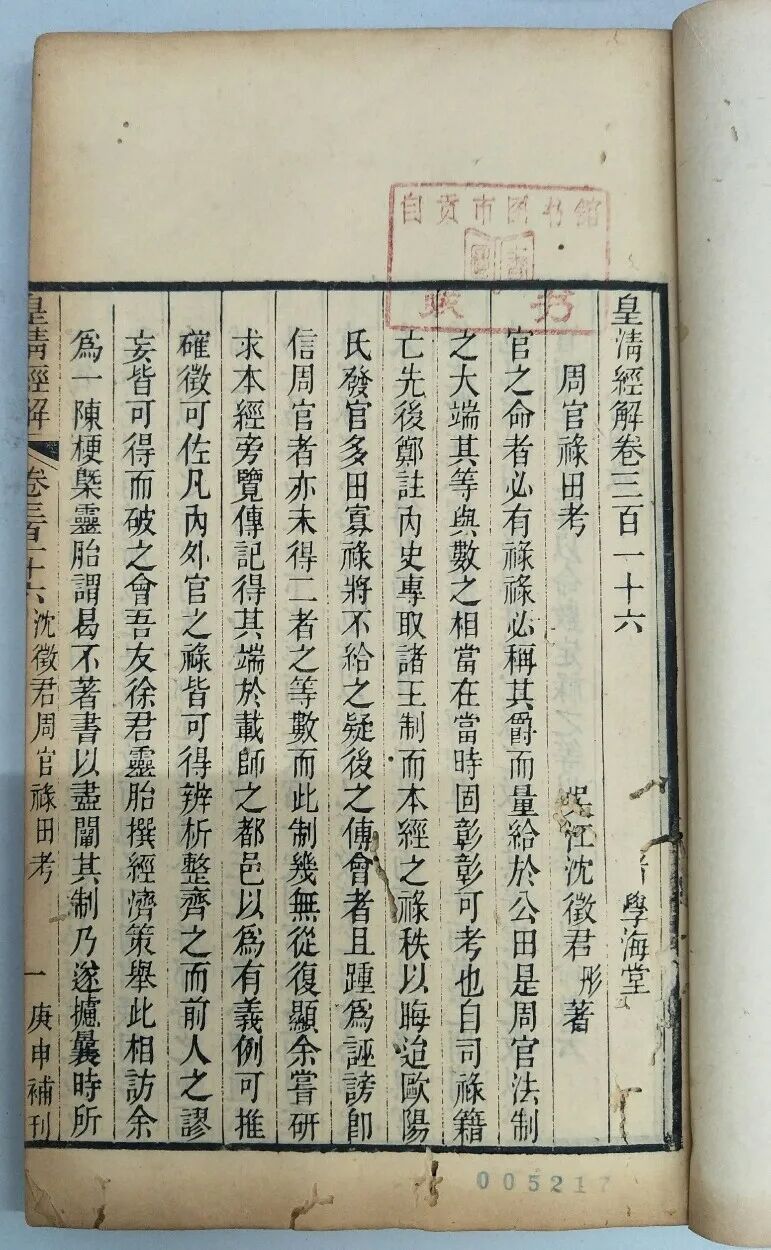 自贡市图书馆
藏书
皇清經解卷三百一十六
學海堂
周官祿田考
吳江沈徵君彤著
官之命者必有祿祿必稱其爵而量給於公田是周官法制
之大端其等與數之相當在當時固彰彰可考也自司祿籍
亡先後鄭註內史專取諸王制而本經之祿秩以晦迨歐陽
氏發官多田寡祿將不給之疑後之傅會者且踵爲誣謗卽
信周官者亦未得二者之等數而此制幾無從復顯余嘗研
求本經旁覽傳記得其端於載師之都邑以爲有義例可推
確徵可佐凡內外官之祿皆可得辨析整齊之而前人之謬
妄皆可得而破之會吾友徐君靈胎撰經濟策舉此相訪余
爲一陳梗槩靈胎謂曷不著書以盡闡其制乃遂攄曩時所
皇清經解
卷三百一十六
沈徵君周官祿田考
一
庚申補刊
005217